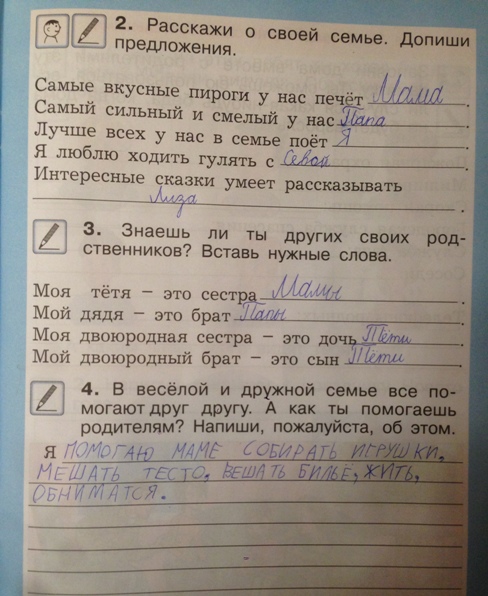 2. Расскажи о своей семье. Допиши
предложения.
Самые вкусные пироги у нас печёт Мама.
Самый сильный и смелый у нас Папа.
Лучше всех у нас в семье поёт Я.
Я люблю ходить гулять с Севой.
Интересные сказки умеет рассказывать
Лиза.
3. Знаешь ли ты других своих род-
ственников? Вставь нужные слова.
Моя тётя – это сестра Мамы.
Мой дядя – это брат Папы.
Моя двоюродная сестра – это дочь Тёти.
Мой двоюродный брат – это сын Тёти.
4. В весёлой и дружной семье все по-
могают друг другу. А как ты помогаешь
родителям? Напиши, пожалуйста, об этом.
Я ПОМОГАЮ МАМЕ СОБИРАТЬ ИГРУШКИ,
МЕШАТЬ ТЕСТО, ВЕШАТЬ БИЛЬЁ, ЖИТЬ,
ОБНИМАТСЯ.